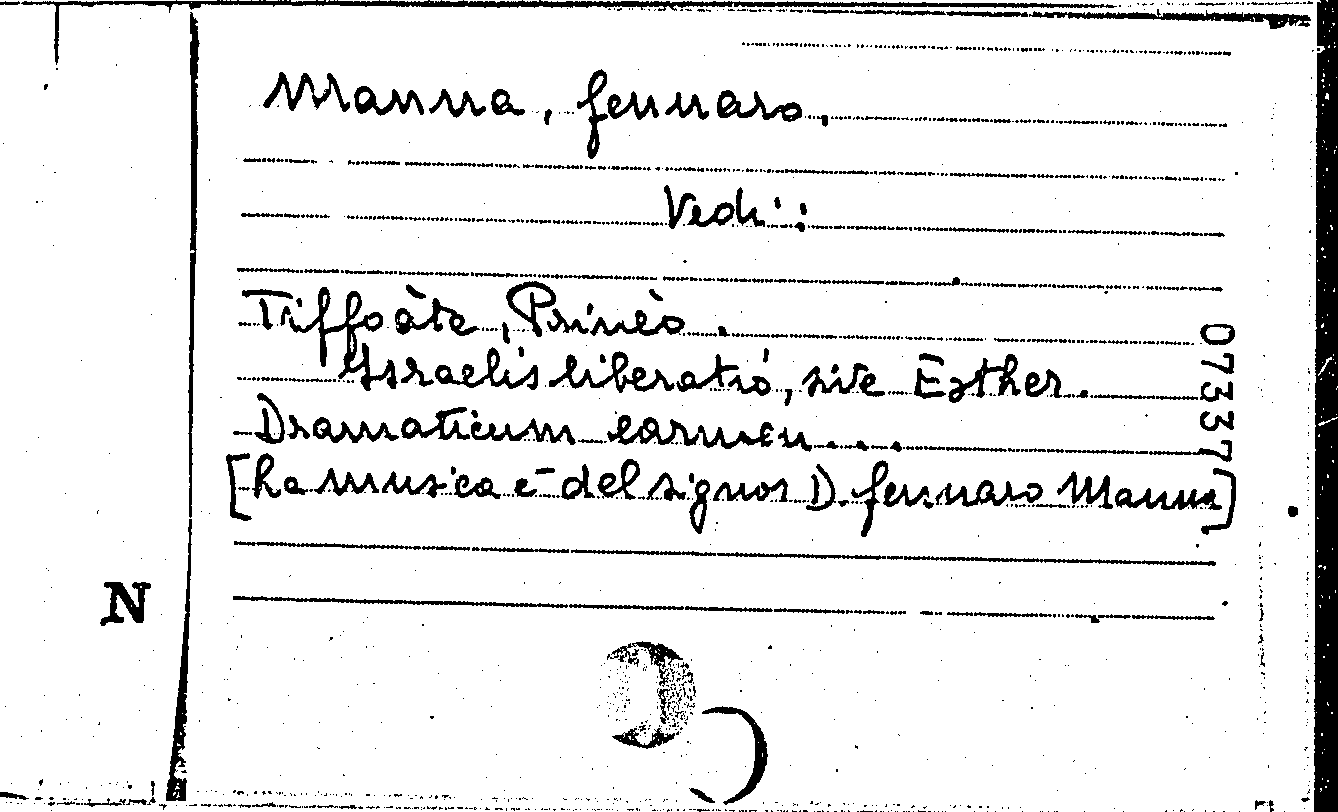 Manna, Gennaro.
Vedi:
Tiffoàte, Prinèo.
Israelis liberatio, sive Esther.
Dramaticum carmen...
[La musica è del signor D. Gennaro Manna]
07337
N